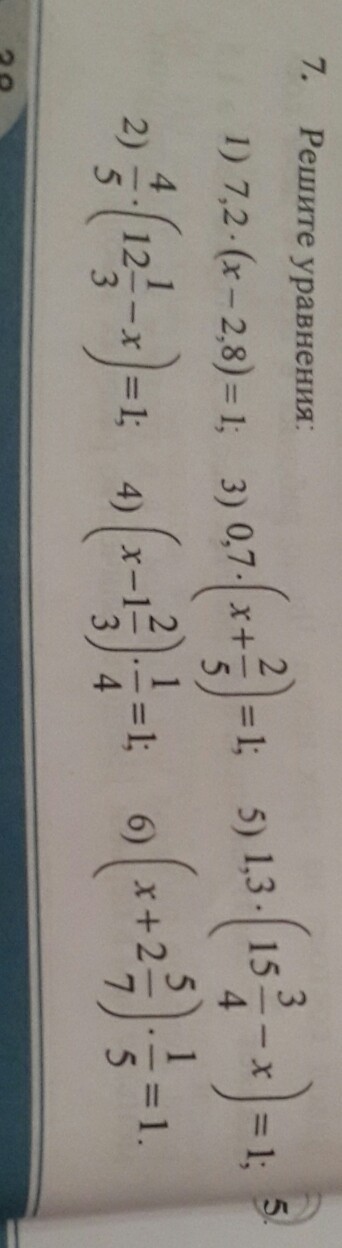 7. Решите уравнения:
1) 7,2 · (x − 2,8) = 1; 3) 0,7 · (x + 2/5) = 1; 5) 1,3 · (15 3/4 − x) = 1;
2) 4/5 · (12 1/3 − x) = 1; 4) (x − 1 2/3) · 1/4 = 1; 6) (x + 2 5/7) · 1/5 = 1.
5